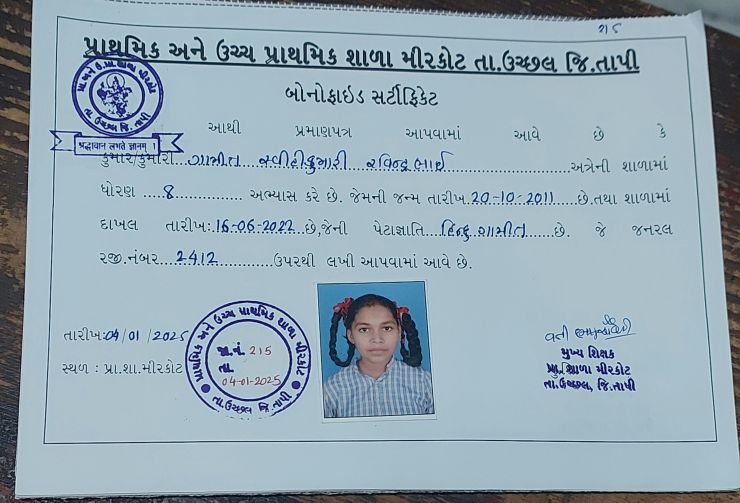 215
પ્રાથમિક અને ઉચ્ચ પ્રાથમિક શાળા મીરકોટ તા.ઉચ્છલ જિ.તાપી
બોનોફાઇડ સર્ટીફિકેટ
આથી પ્રમાણપત્ર આપવામાં આવે છે કે
કુમાર/કુમારી....ગામીત સ્વીટીકુમારી રવિન્દ્રભાઈ....અત્રેની શાળામાં
ધોરણ ....8.... અભ્યાસ કરે છે. જેમની જન્મ તારીખ.20-10-2011....છે.તથા શાળામાં
દાખલ તારીખ:.16-06-2022.છે,જેની પેટાજ્ઞાતિ...હિન્દુ ગામીત....છે. જે જનરલ
રજી.નંબર....2412....ઉપરથી લખી આપવામાં આવે છે.
તા.ઉચ્છલ જિ.તાપી
શ્રદ્ધાવાન લભતે જ્ઞાનમ્
તારીખ:04/01/2025
સ્થળ : પ્રા.શા.મીરકોટ
પ્રાથમિક અને ઉચ્ચ પ્રાથમિક શાળા મીરકોટ
જા.નં. 215
તા.
04-01-2025
તા.ઉચ્છલ જિ.તાપી
મુખ્ય શિક્ષક
પ્રા. શાળા મીરકોટ
તા.ઉચ્છલ, જિ.તાપી